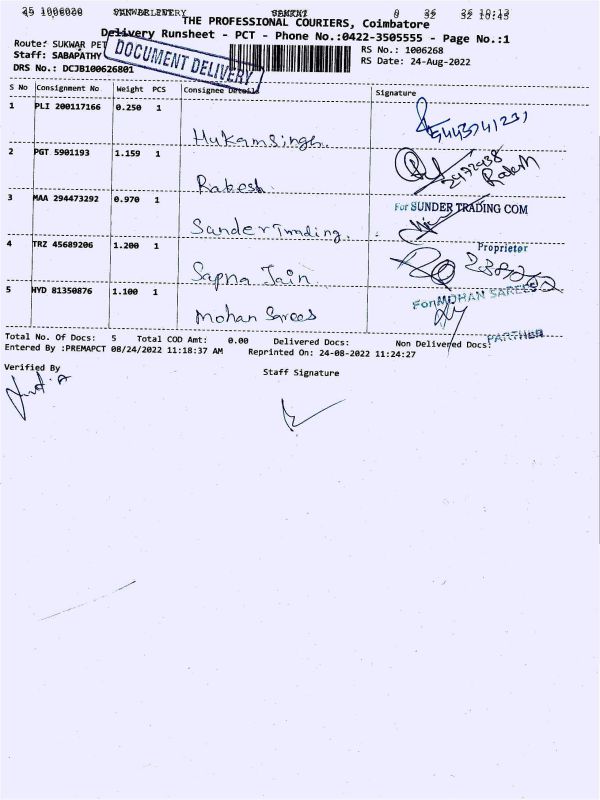 THE PROFESSIONAL COURIERS, Coimbatore
Delivery Runsheet - PCT - Phone No.:0422-3505555 - Page No.:1
Route: SUKWAR PET
RS No.: 1006268
Staff: SABAPATHY
RS Date: 24-Aug-2022
DRS No.: DCJB100626801
DOCUMENT DELIVERY
S No Consignment No Weight PCS Consignee Details Signature
1 PLI 200117166 0.250 1
Hukamsingh
2 PGT 5901193 1.159 1
Rakesh
3 MAA 294473292 0.970 1
For SUNDER TRADING COM
Sander Trading
Proprietor
4 TRZ 45689206 1.200 1
Sapna Jain
5 HYD 81350876 1.100 1
For MOHAN SAREES
Mohan Sarees
PARTNER
Total No. Of Docs: 5 Total COD Amt: 0.00 Delivered Docs: Non Delivered Docs:
Entered By :PREMAPCT 08/24/2022 11:18:37 AM Reprinted On: 24-08-2022 11:24:27
Verified By
Staff Signature